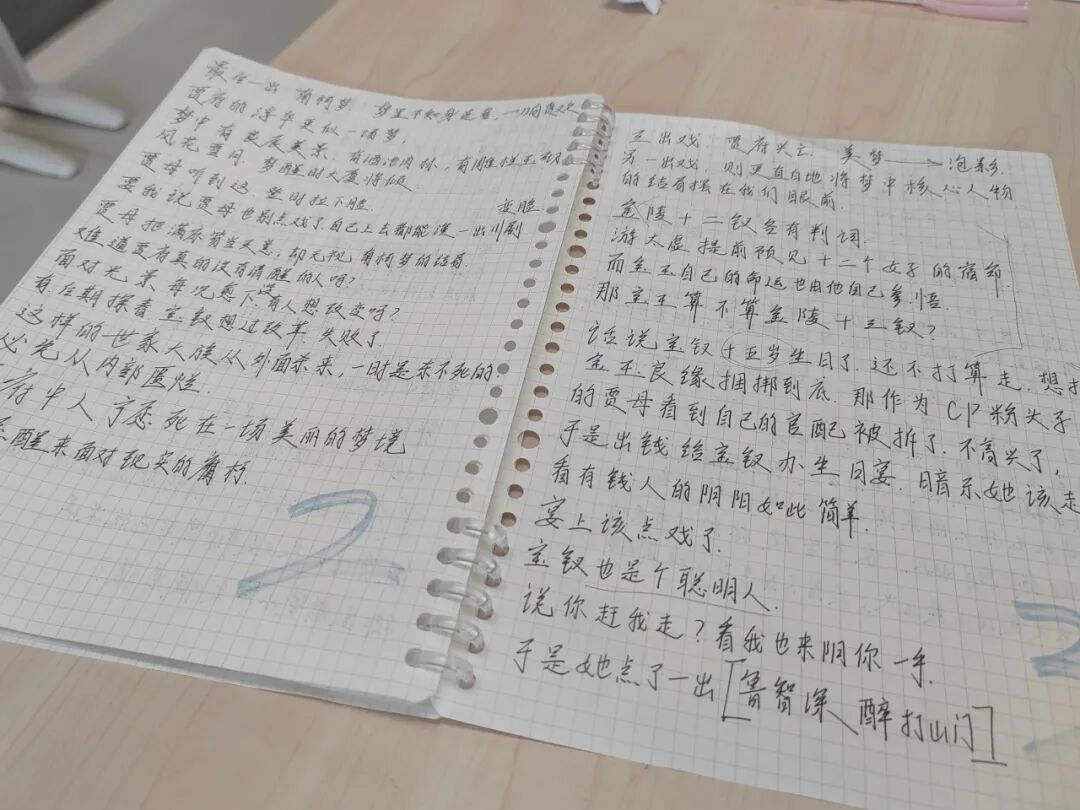 最后一出 南柯梦 梦里不知身是客,一晌贪欢
贾府的清华更似一场梦,
梦中有良辰美景,有酒池肉林,有
风花雪月.梦醒时大厦将倾
贾母听到这 登时拉下脸.
变脸.
要我说贾母也别点戏了自己上去都能演一出川剧
贾母把满床笏当天意,却无视南柯梦的结局.
难道贾府真的没有清醒的人吗?
面对光景每况愈下没有人想改变吗?
有.后期探春宝钗想过改革.失败了.
这样的世家大族从外面杀来,一时是杀不死的.
必先从内部溃烂.
府中人宁愿死在一场美丽的梦境
醒来面对现实的腐朽.
2
三出戏.贾府兴亡.美梦→泡影.
另一出戏 则更直白地将梦中核心人物
的结局摆在我们眼前.
金陵十二钗各有判词.
游太虚提前预见十二个女子的宿命
而宝玉自己的命运也由他自己参悟
那宝玉算不算金陵十三钗?
话说宝钗十五岁生日了.还不打算走.想把
金玉良缘捆绑到底.那作为CP粉头子
的贾母看到自己的官配被拆了.不高兴了,
于是出钱给宝钗办生日宴.暗示她该走
看有钱人的阴阳如此简单.
宴上该点戏了.
宝钗也是个聪明人.
说你赶我走?看我也来阴你一手.
于是她点了一出[鲁智深醉打山门]